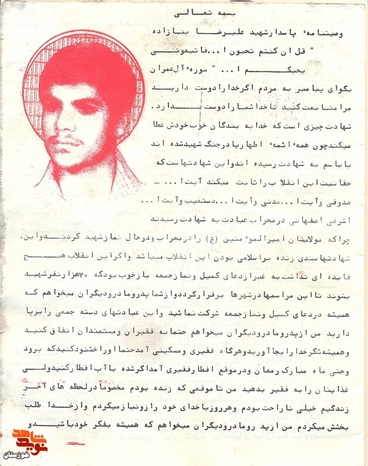 بسمه تعالی
وصیتنامه پاسدار شهید علیرضا بنازاده
"قل ان کنتم تحبون ا... فاتبعونی
یحببکم ا..." سوره آل عمران
بگوای پیامبر به مردم اگر خدا را دوست دارید
مرا متابعت کنید تا خدا شما را دوست بدارد.
شهادت چیزی است که خدا به بندگان خوب خودش عطا
میکند چون همه ائمه اطهار یا در جنگ شهید شده اند
یا با سم به شهادت رسیده اند و این شهادتهاست که
حقانیت این انقلاب را ثابت میکند آیت ا... ــ
صدوقی و آیت ا... مدنی و آیت ا... دستغیب و آیت ا...
اشرفی اصفهانی در محراب عبادت به شهادت رسیدند
چرا که مولایشان امیر المومنین (ع) را در محراب و در حال نماز شهید کردند و این،
شهادتها سندی زنده بر اسلامی بودن این انقلاب میباشد و اگر این انقلاب هیچ
فایده ای نداشت به غیر از دعای کمیل و نماز جمعه باز خوب بود که ۷۰هزار نفر شهید
بشوند تا این مراسمها در شهرها برقرار گردد و از شما پدر و مادر و دیگران میخواهم که
همیشه در دعای کمیل و نماز جمعه شرکت نمائید و این عبادتهای دسته جمعی را برپا
دارید من از پدر و مادر و دیگران میخواهم حتما به فقیران و مستمندان انفاق کنید
و همیشه شکر خدا را بجا آورید و هرگاه فقیری و مسکینی آمد حتما او را خشنود کنید که برود
وحتی ماه مبارک رمضان و در موقع افطار فقیری آمد اگر شده با آب افطار کنید ولی
غذایتان را به فقیر بدهید من تا موقعی که زنده بودم مخصوصا در لحظه های آخر
زندگیم خیلی ناراحت بودم و هر روز با خدای خود راز و نیاز میکردم و از خدا طلب
بخشش میکردم من از پدر و مادر و دیگران میخواهم که همیشه بفکر خود باشید و
نوید شاهد
خوزستان